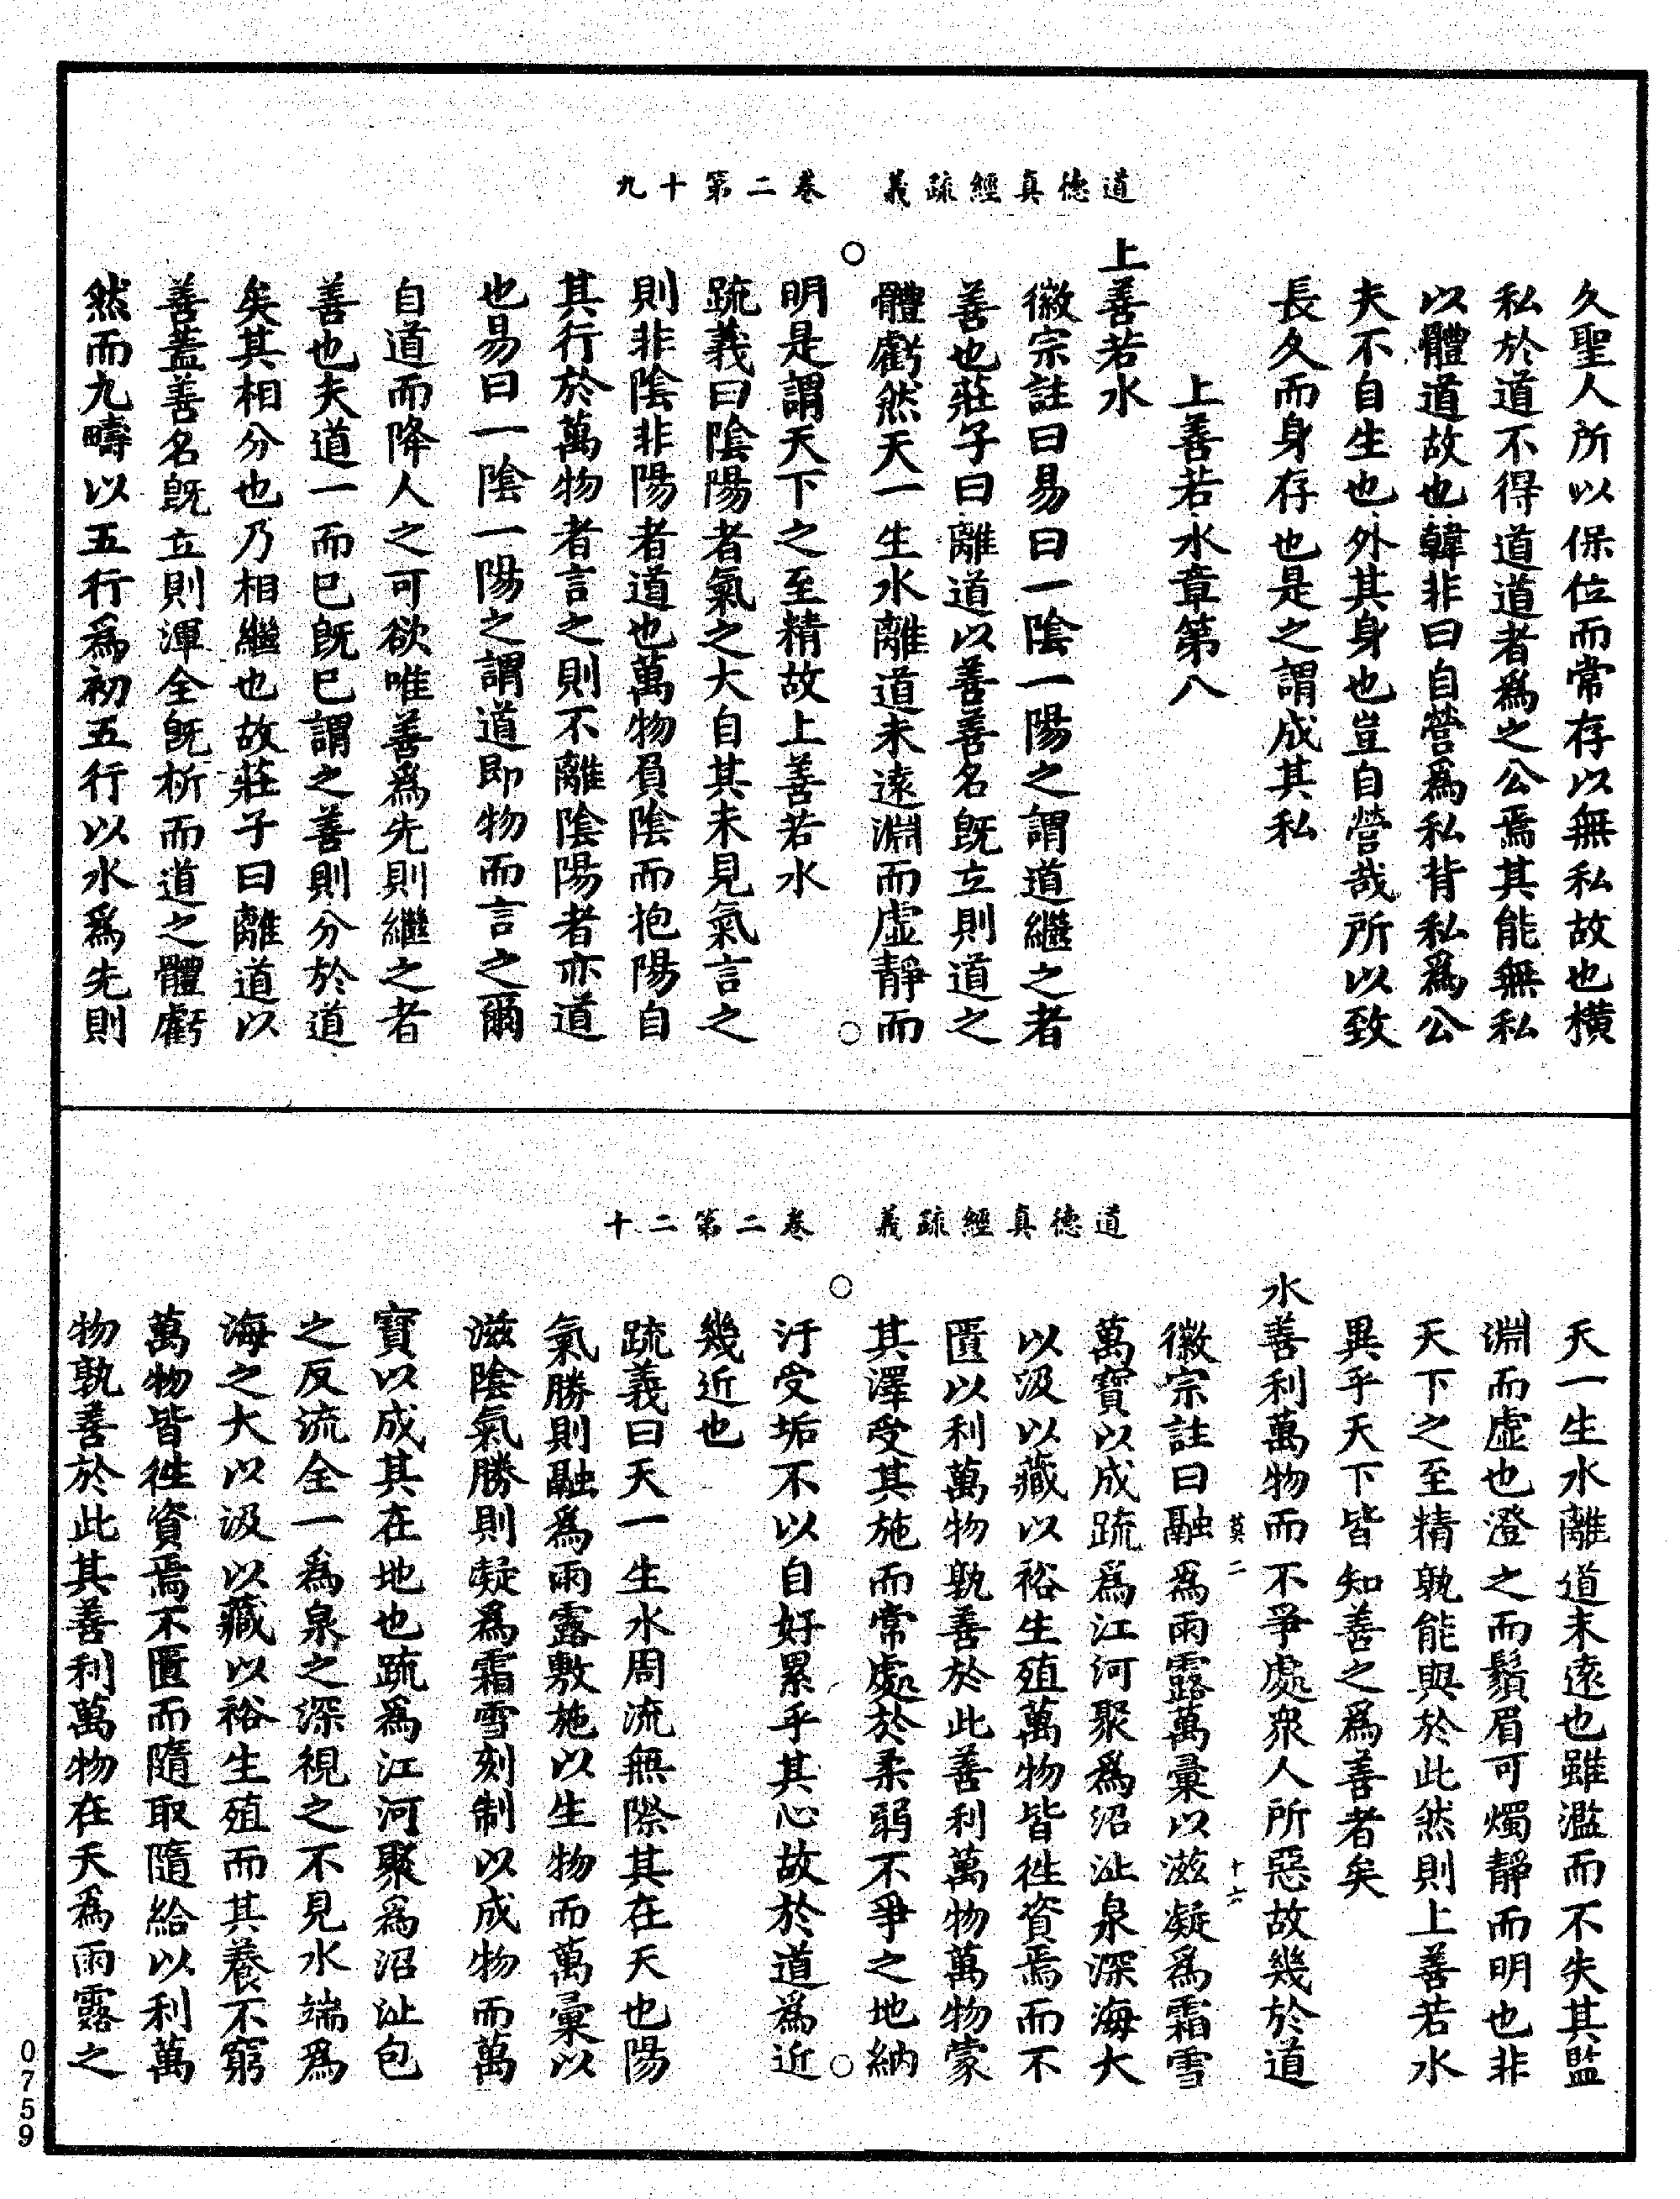 道德真經疏義　卷二第十九
久聖人所以保位而常存以無私故也橫
私於道不得道道者爲之公焉其能無私
以體道故也韓非曰自營爲私背私爲公
夫不自生也外其身也豈自營哉所以致
長久而身存也是之謂成其私
上善若水章第八
上善若水
徽宗註曰易曰一陰一陽之謂道繼之者
善也莊子曰離道以善善名旣立則道之
體虧然天一生水離道未遠淵而虛靜而
明是謂天下之至精故上善若水
疏義曰陰陽者氣之大自其未見氣言之
則非陰非陽者道也萬物負陰而抱陽自
其行於萬物者言之則不離陰陽者亦道
也易曰一陰一陽之謂道即物而言之爾
自道而降人之可欲唯善爲先則繼之者
善也夫道一而已旣已謂之善則分於道
矣其相分也乃相繼也故莊子曰離道以
善蓋善名旣立則渾全旣析而道之體虧
然而九疇以五行爲初五行以水爲先則
道德真經疏義　卷二第二十
天一生水離道未遠也雖濫而不失其監
淵而虛也澄之而鬚眉可燭靜而明也非
天下之至精孰能與於此然則上善若水
異乎天下皆知善之爲善者矣
水善利萬物而不爭處衆人所惡故幾於道
莫二　十六
徽宗註曰融爲雨露萬彙以滋凝爲霜雪
萬寶以成疏爲江河聚爲沼沚泉深海大
以汲以藏以裕生殖萬物皆徃資焉而不
匱以利萬物孰善於此善利萬物萬物蒙
其澤受其施而常處於柔弱不爭之地納
汙受垢不以自好累乎其心故於道爲近
幾近也
疏義曰天一生水周流無際其在天也陽
氣勝則融爲雨露敷施以生物而萬彙以
滋陰氣勝則凝爲霜雪刻制以成物而萬
寶以成其在地也疏爲江河聚爲沼沚包
之反流全一爲泉之深視之不見水端爲
海之大以汲以藏以裕生殖而其養不窮
萬物皆徃資焉不匱而隨取隨給以利萬
物孰善於此其善利萬物在天爲雨露之
0759